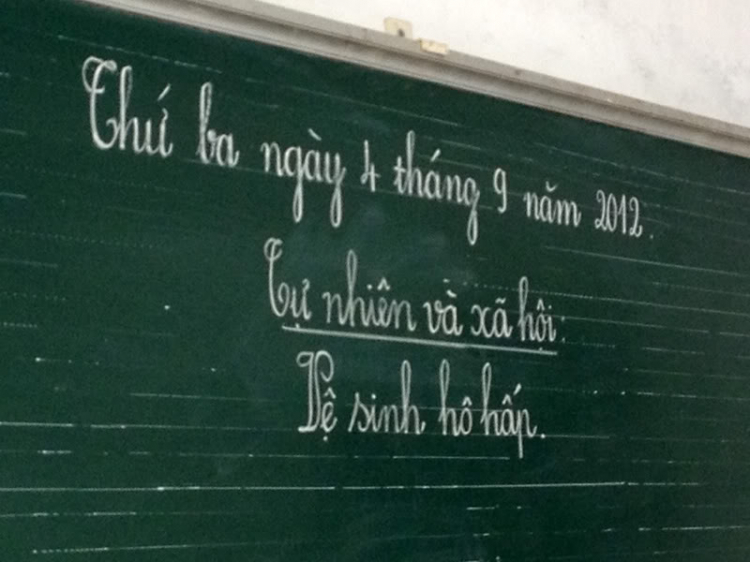 Thứ ba ngày 4 tháng 9 năm 2012.
Tự nhiên và xã hội:
Vệ sinh hô hấp.